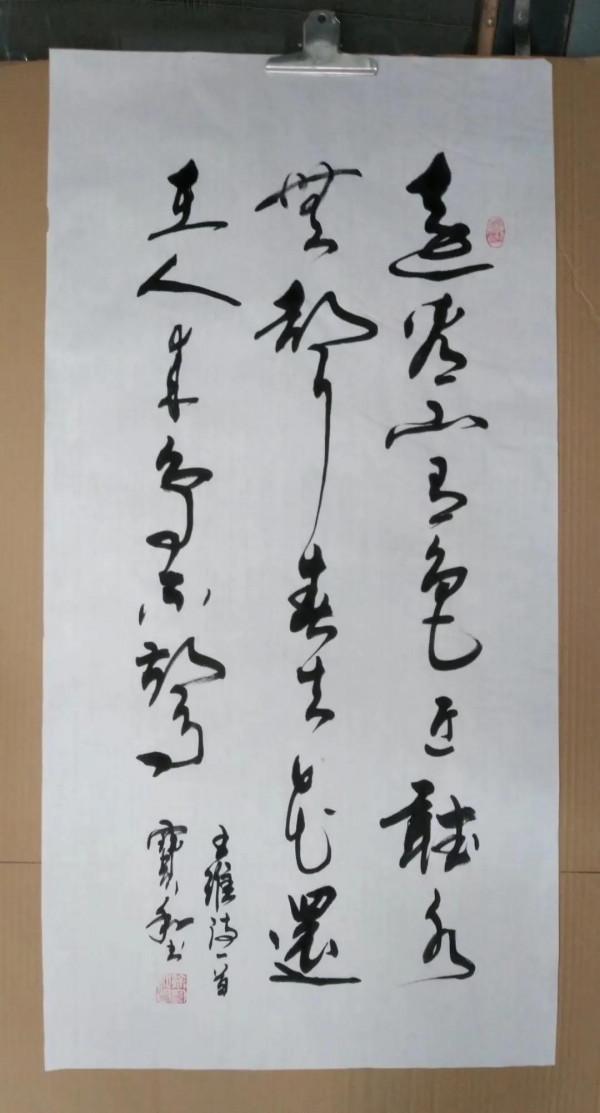 遠看山有色近聽水
無聲春去花還
在人來鳥不驚
王維詩一首
寶和书